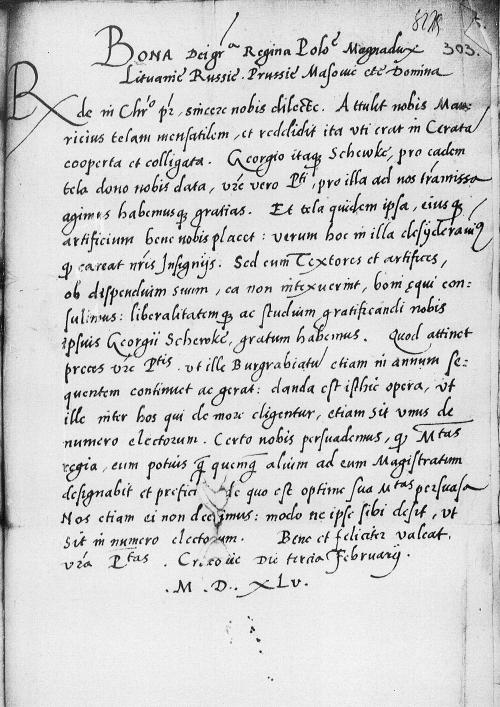 303.
BONA Dei gr̃a Regina Polõe Magnadux
Lituanie Russie. Prussie Masouie etc̃ Domina
Rde in Chr̃o pr̃, sincere nobis dilecte. Attulit nobis Mau-
ricius telam mensatilem, et reddidit ita uti erat in Cerata
cooperta et colligata. Georgio itaq; Schewke, pro eadem
tela dono nobis data, vr̃e vero Pti, pro illa ad nos tramissa
agimus habemusq; gratias. Et tela quidem ipsa, eiusq;
artificium bene nobis placet: verum hoc in illa desyderamq
q̃ careat nr̃is Insignijs. Sed cum Textores et artifices,
ob dispendium suum, ea non intexuerint, boni equi con-
sulimus: liberalitatemq; ac studium gratificandi nobis
ipsius Georgii Schewke, gratum habemus. Quod attinet
preces vr̃e Ptis. vt ille Burgrabiatũ etiam in annum se-
quentem continuet ac gerat: danda est isthic opera, vt
ille inter hos qui de more eligentur, etiam sit vnus de
numero electorum. Certo nobis persuademus, q̃ Mtas
regia, eum potius q̃ quemq̃ alium ad eum Magistratum
designabit et prefici de quo est optime sua Mtas persuasa
Nos etiam ei non deerimus: modo ne ipse sibi desit, vt
sit in numero electorum. Bene et feliciter valeat.
vr̃a Ptas. Cracouie Die tercia Februarij.
.M.D.XLV.